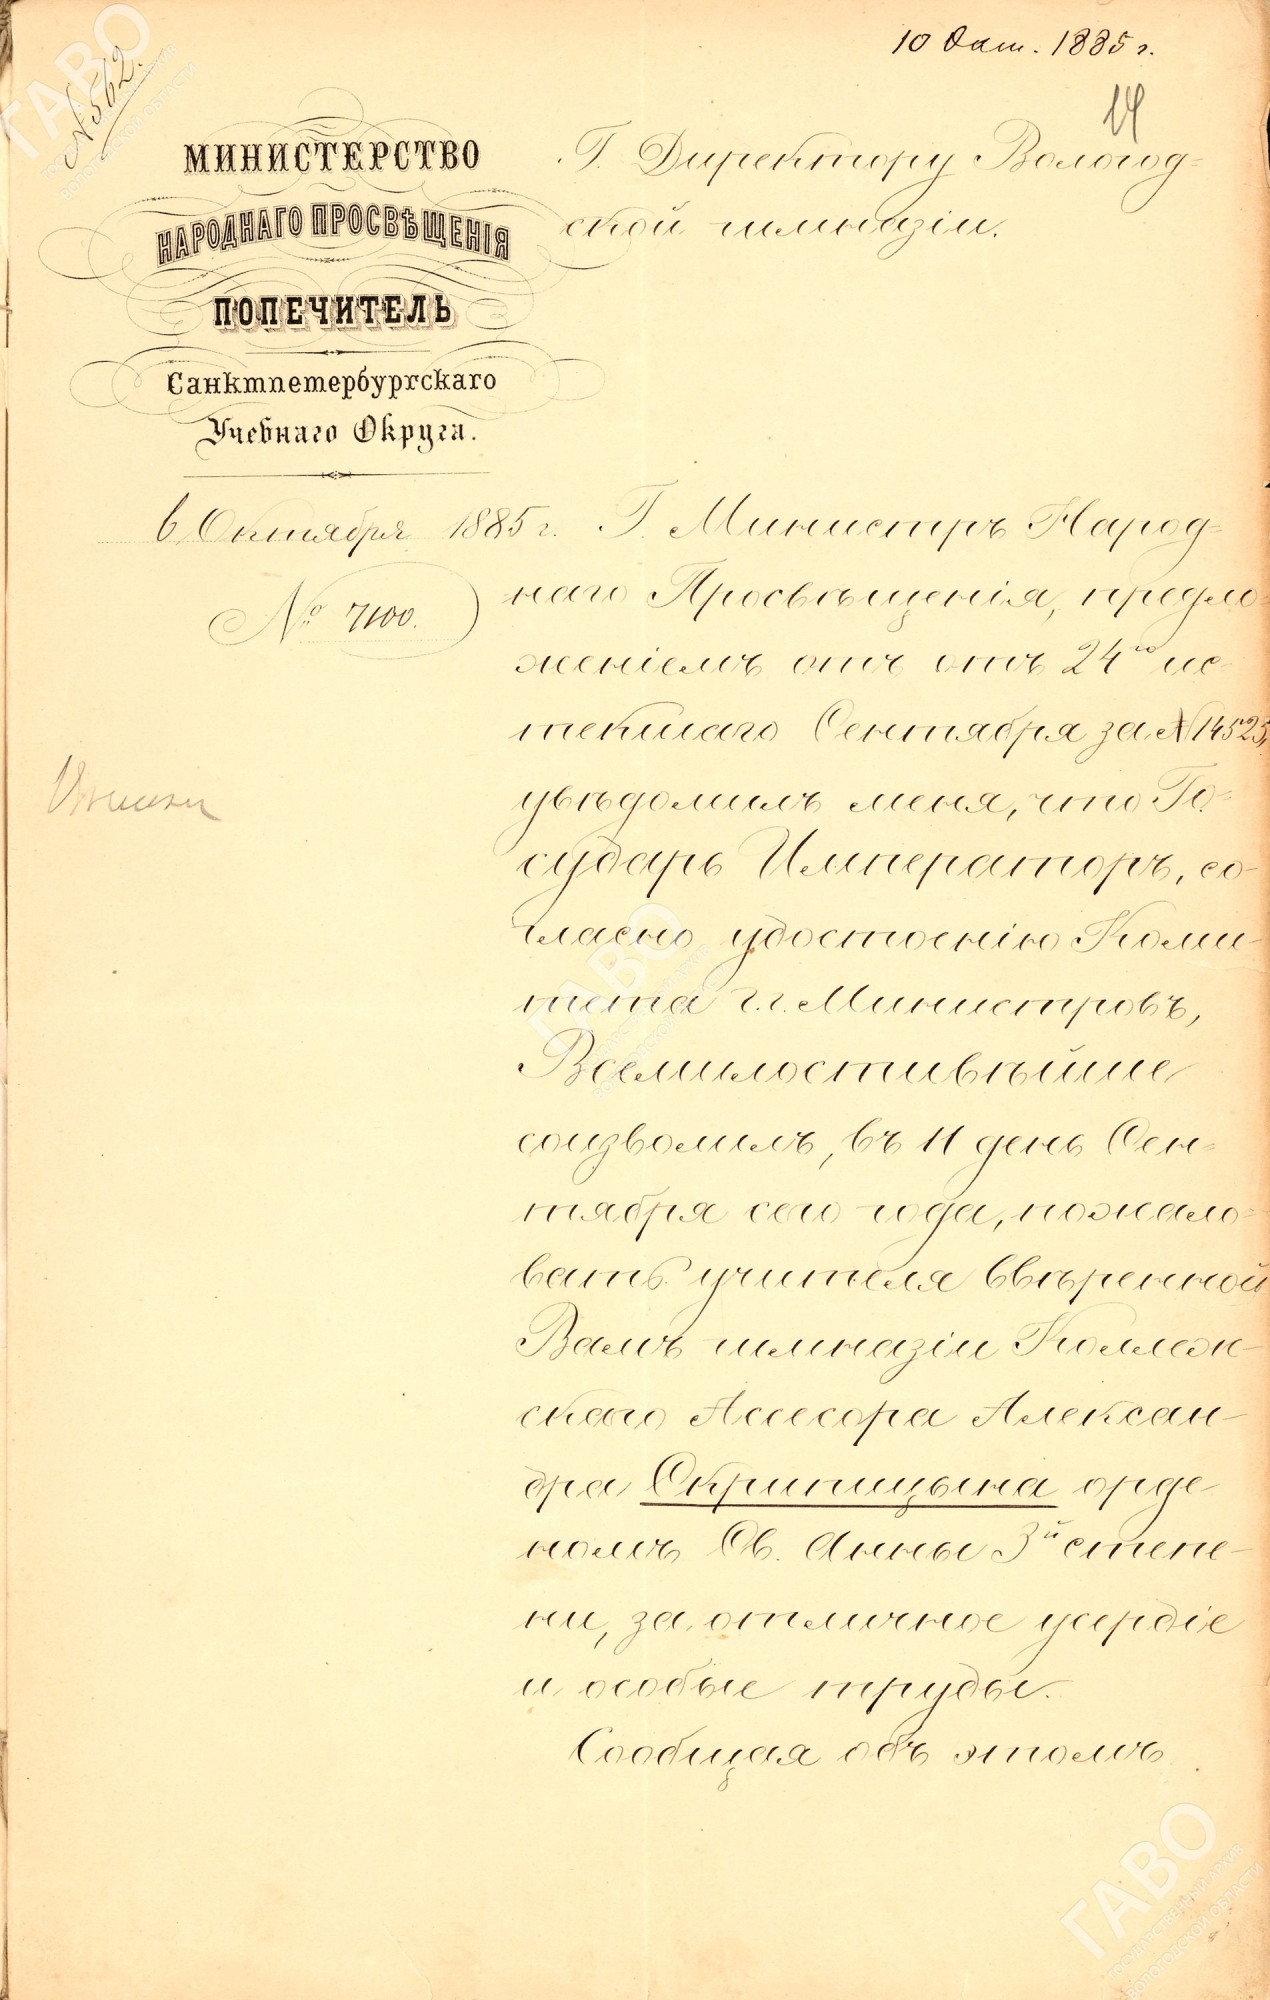 10 Окт. 1885 г.
№ 562.
14
МИНИСТЕРСТВО
НАРОДНАГО ПРОСВѢЩЕНІЯ
ПОПЕЧИТЕЛЬ
Санктпетербургскаго
Учебнаго Округа.
6 Октября 1885 г.
№ 7100.
Г. Директору Вологод-
ской гимназіи.
Г. Министръ Народ-
наго Просвѣщенія, предло-
женіемъ отъ отъ 24го ис-
текшаго Сентября за № 14525,
увѣдомилъ меня, что Го-
сударь Императоръ, со-
гласно удостоенію Коми-
тета г.г. Министровъ,
Всемилостивѣйше
соизволилъ, въ 11 день Сен-
тября сего года, пожало-
вать учителя ввѣренной
Вамъ гимназіи Коллеж-
скаго Ассесора Алексан-
дра Скрипицына орде-
номъ Св. Анны 3й степе-
ни, за отличное усердіе
и особые труды.
Сообщая объ этомъ
ГАВО
ГОСУДАРСТВЕННЫЙ АРХИВ
ВОЛОГОДСКОЙ ОБЛАСТИ